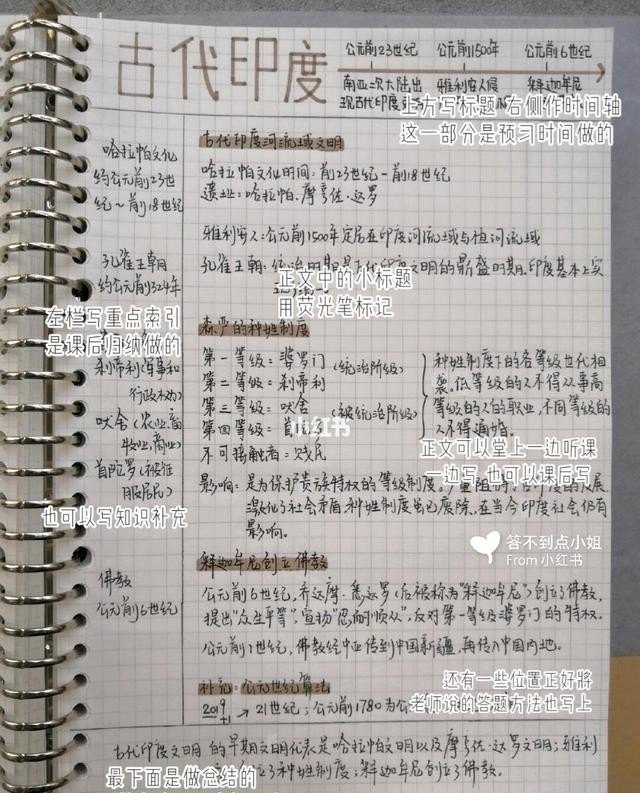 古代印度
公元前23世纪 公元前1500年 公元前6世纪
南亚次大陆出 雅利安人侵 释迦牟尼
现古代印度
上方写标题 右侧作时间轴
这一部分是预习时间做的
古代印度河流域文明
哈拉帕文化
约公元前23世
纪~前18世纪
哈拉帕文化时间：前23世纪-前18世纪
遗业：哈拉帕、摩亨佐·达罗
雅利安人：公元前1500年定居在印度河流域与恒河流域
孔雀王朝
约公元前324年
孔雀王朝：统治时期是古代印度文明的鼎盛时期，印度基本上实
正文中的小标题
用荧光笔标记
左栏写重点索引
是课后归纳做的
森严的种姓制度
刹帝利（军事和
行政权力）
吠舍（农业、畜
牧业、商业）
首陀罗（被征
服居民）
第一等级：婆罗门
第二等级：刹帝利
（统治阶级）
第三等级：吠舍
第四等级：首
（被统治阶级）
不可接触者：贱民
种姓制度下的各等级世代相
袭，低等级的人不得从事高
等级的人的职业，不同等级的
人不得通婚。
小红书
正文可以堂上一边听课
一边写，也可以课后写
影响：是为保护贵族特权的等级制度，严重阻碍了印度的发展
激化了社会矛盾，种姓制度虽已废除，在当今印度社会仍有
影响。
也可以写知识补充
答不到点小姐
From 小红书
释迦牟尼创立佛教
佛教
公元前6世纪
公元前6世纪，乔达摩·悉达罗（后被称为“释迦牟尼”）创立了佛教，
提出“众生平等”，宣扬“忍耐顺从”，反对第一等级婆罗门的特权。
公元前1世纪，佛教经中亚传到中国新疆，再传入中国内地。
还有一些位置正好将
老师说的答题方法也写上
补充：公元世纪算法
2019 → 21世纪；公元前1780为公
+1
古代印度文明的早期文明代表是哈拉帕文明以及摩亨佐·达罗文明；雅利
立了种姓制度；释迦牟尼创立了佛教。
最下面是做总结的